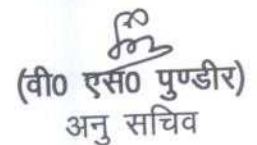 (वी० एस० पुण्डीर)
अनु सचिव